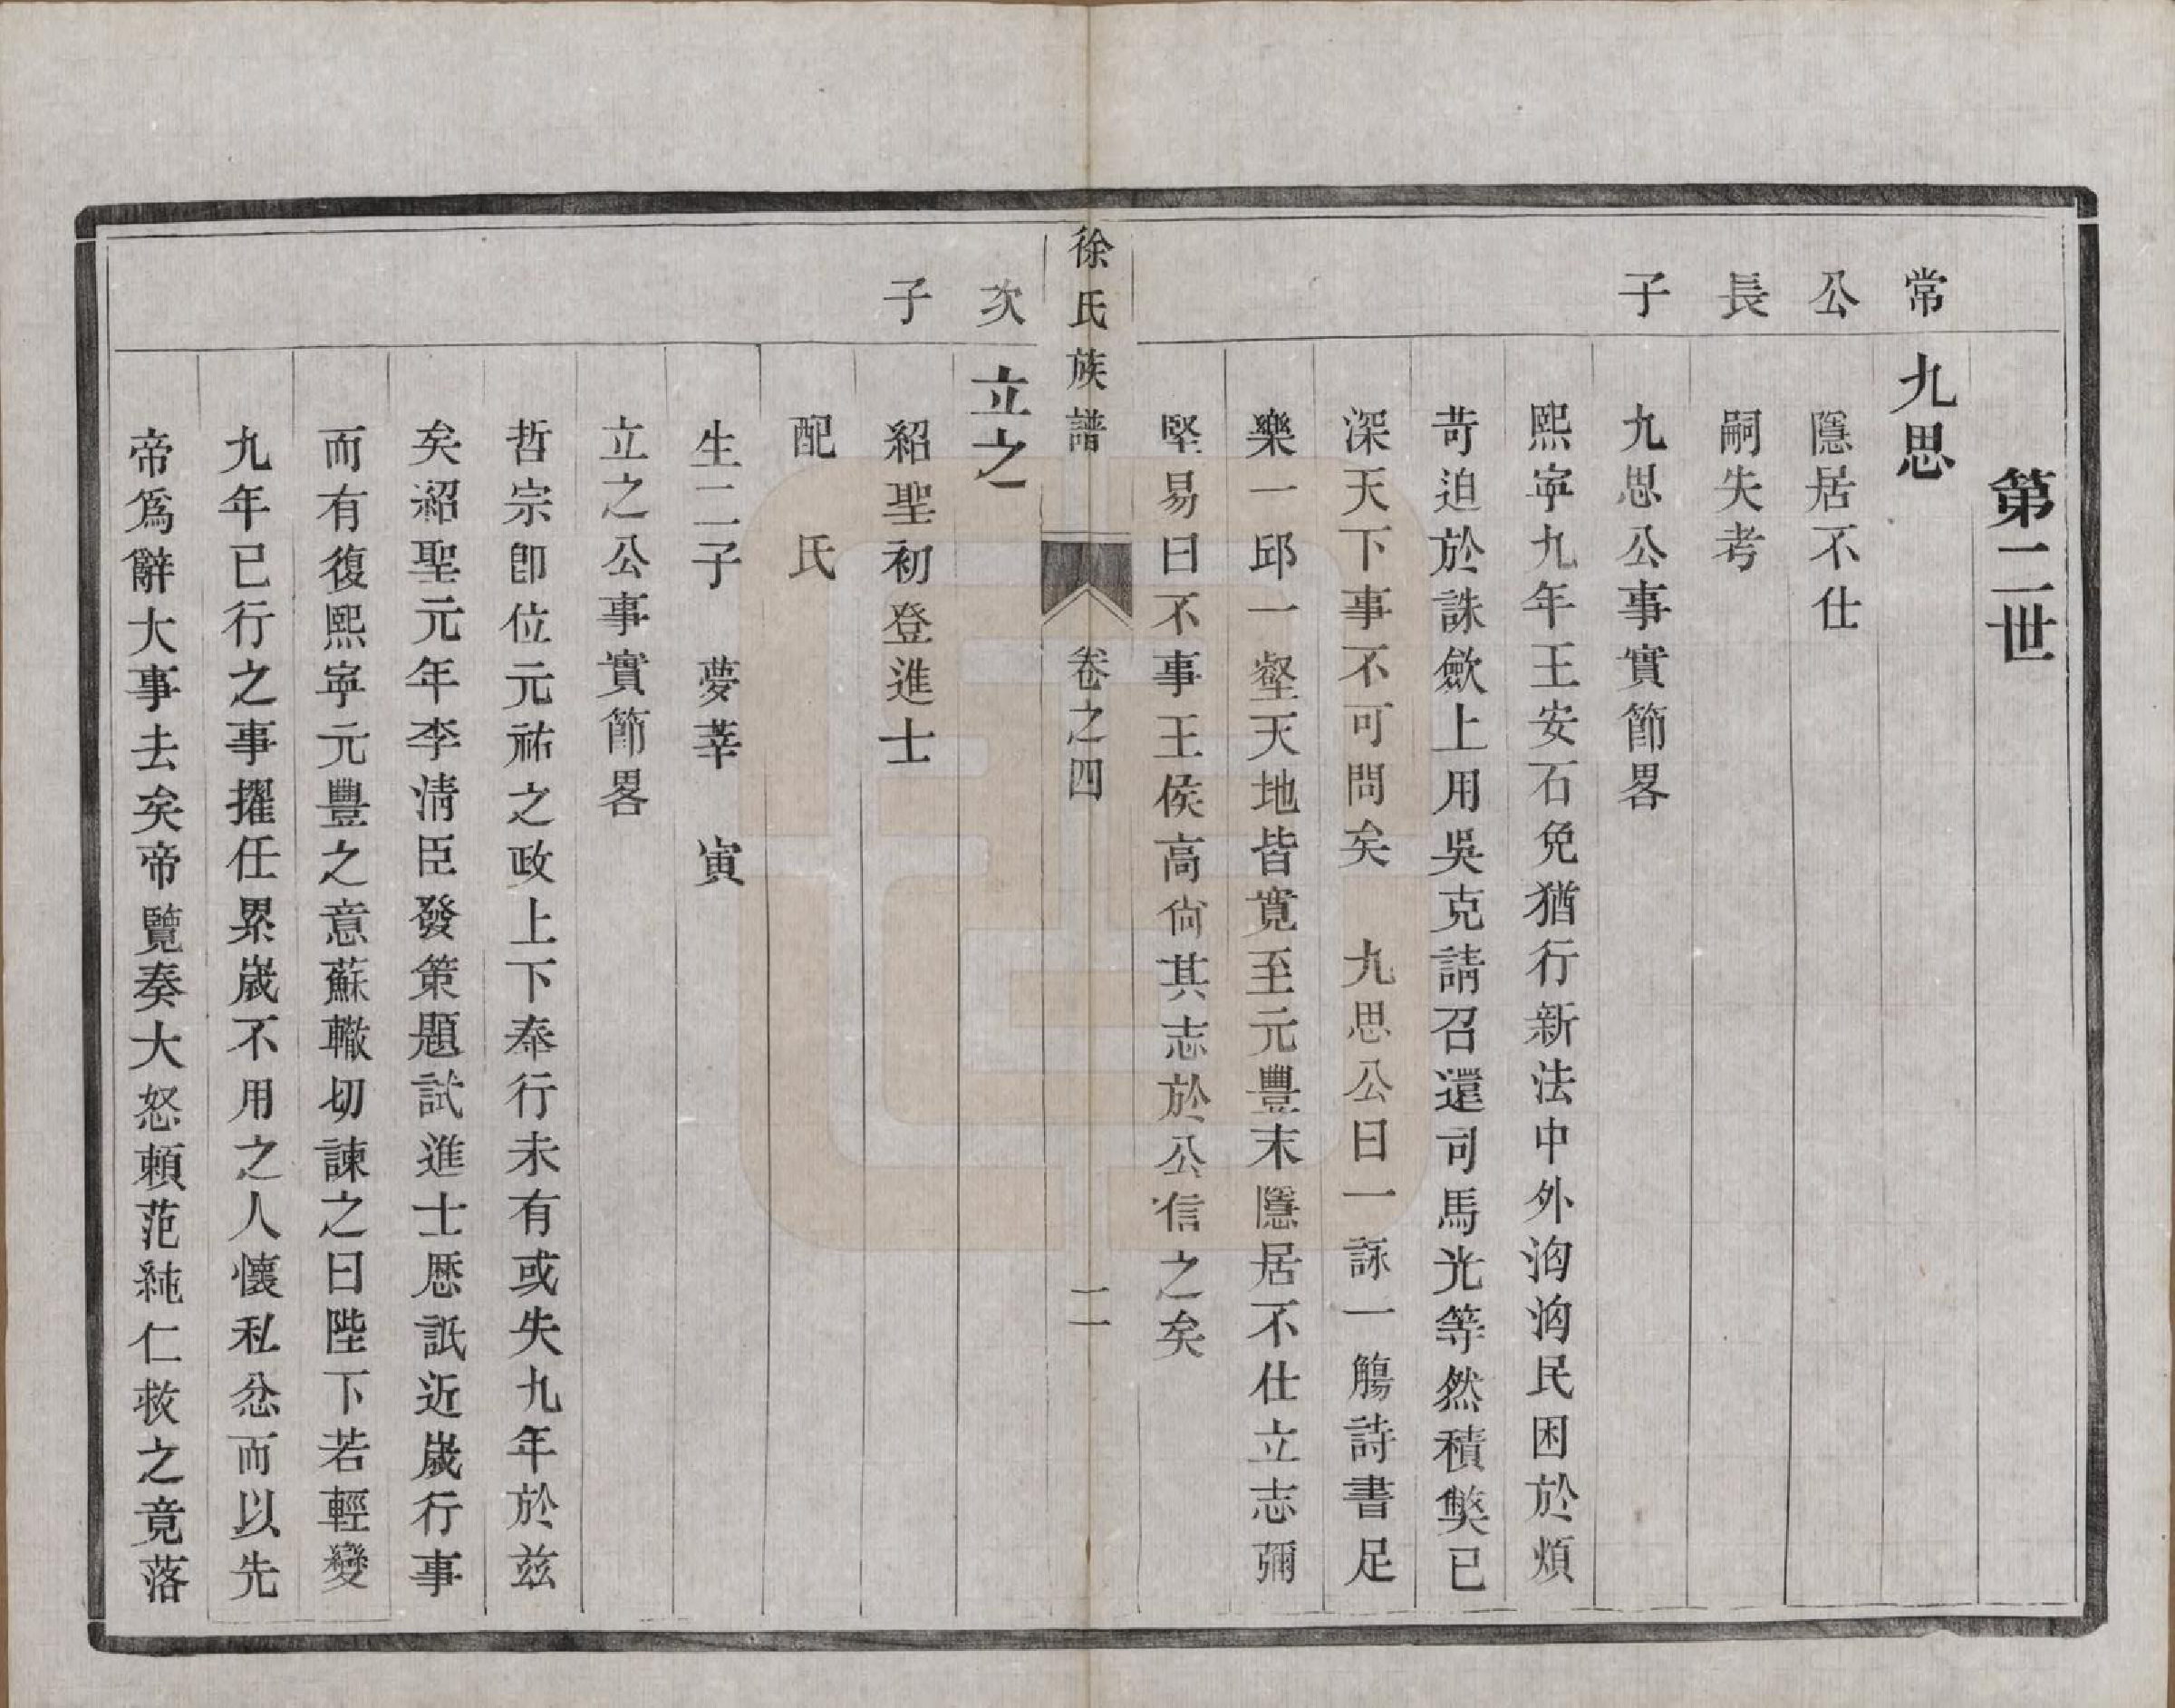 第二世
常
九思
公
隱居不仕
長
嗣失考
子
九思公事實節畧
熙寧九年王安石免猶行新法中外洶洶民困於煩
苛迫於誅歛上用吳克請召還司馬光等然積獘已
深天下事不可問矣 九思公曰一詠一觴詩書足
樂一邱一壑天地皆寬至元豐末隱居不仕立志彌
堅易曰不事王侯高尚其志於公信之矣
徐氏族譜 卷之四 二
次
立之
子
紹聖初登進士
配 氏
生二子 夢莘 寅
立之公事實節畧
哲宗卽位元祐之政上下奉行未有或失九年於兹
矣紹聖元年李清臣發策題試進士歷詆近歲行事
而有復熙寧元豐之意蘇轍切諫之曰陛下若輕變
九年已行之事擢任累歲不用之人懷私忿而以先
帝爲辭大事去矣帝覽奏大怒賴范純仁救之竟落